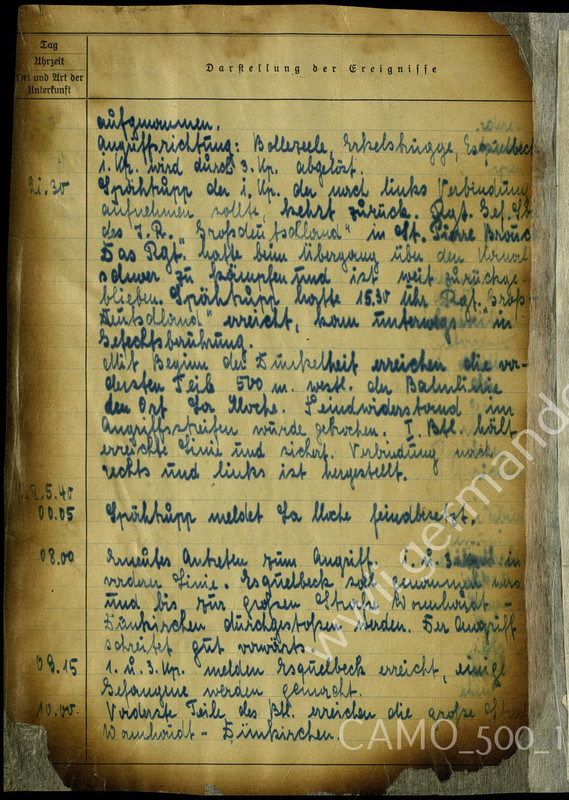 Tag
Uhrzeit
Ort und Art der
Unterkunft
Darstellung der Ereignisse
aufgenommen.
Angriffsrichtung: Bollezeele, Erkelsbrügge, Esquelbeck
1. Kp. wird durch 3. Kp. abgelöst.
21.30 Spähtrupp der 1. Kp. der nach links Verbindung
aufnehmen sollte, kehrt zurück. Rgt. Gef. St.
des I.R. „Großdeutschland" in St. Pierre Brouck
Das Rgt. hatte beim Übergang über den Kanal
schwer zu kämpfen und ist weit zurückge-
blieben. Spähtrupp hatte 15.30 Uhr Rgt. „Groß-
deutschland" erreicht, kam unterwegs in
Gefechtsberührung.
Mit Beginn der Dunkelheit erreichen die vor-
dersten Teile 500 m. westl. der Bahnlinie
den Ort La Cloche. Feindwiderstand im
Angriffsstreifen wurde gebrochen. I. Btl. hält
erreichte Linie und sichert. Verbindung nach
rechts und links ist hergestellt.
8.5.40
00.05 Spähtrupp meldet La Cloche feindbesetzt.
08.00 Erneutes Antreten zum Angriff. 1. u. 3. in
vorderer Linie. Esquelbeck soll genommen werd
und bis zur großen Straße Wormhoudt -
Dünkirchen durchgestoßen werden. Der Angriff
schreitet gut vorwärts.
09.15 1. u. 3. Kp. melden Esquelbeck erreicht, einige
Gefangene werden gemacht.
10.00 Vorderste Teile des Btl. erreichen die große
Wormhoudt - Dünkirchen.
www.germando
CAMO_500_1